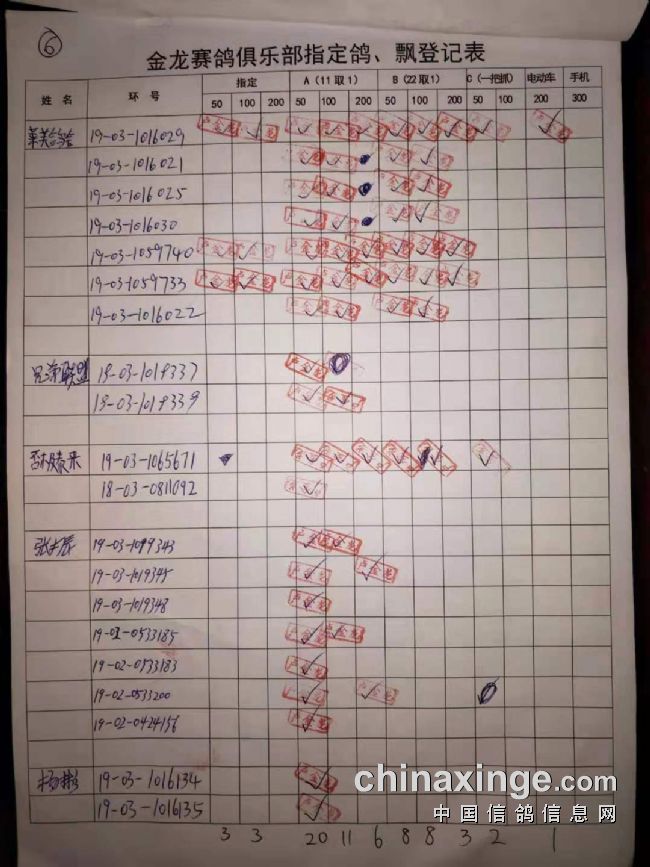 6
金龙赛鸽俱乐部指定鸽、飘登记表
姓名 环号 指定 A（11取1） B（22取1） C（一把抓） 电动车 手机
50 100 200 50 100 200 50 100 200 50 100 200 300
19-03-1016029
19-03-1016021
19-03-1016025
19-03-1016030
19-03-1059740
19-03-1059733
19-03-1016022
兄弟联盟 18-03-1019337
18-03-1019339
19-03-1065671
18-03-0811092
19-03-1099343
19-03-1019345
19-03-1019348
19-02-0533185
19-02-0533183
19-02-0533200
19-02-0424156
杨彬 19-03-1016134
19-03-1016135
3 3 20 11 6 8 8 3 2 1
chinaxinge.com
中国信鸽信息网